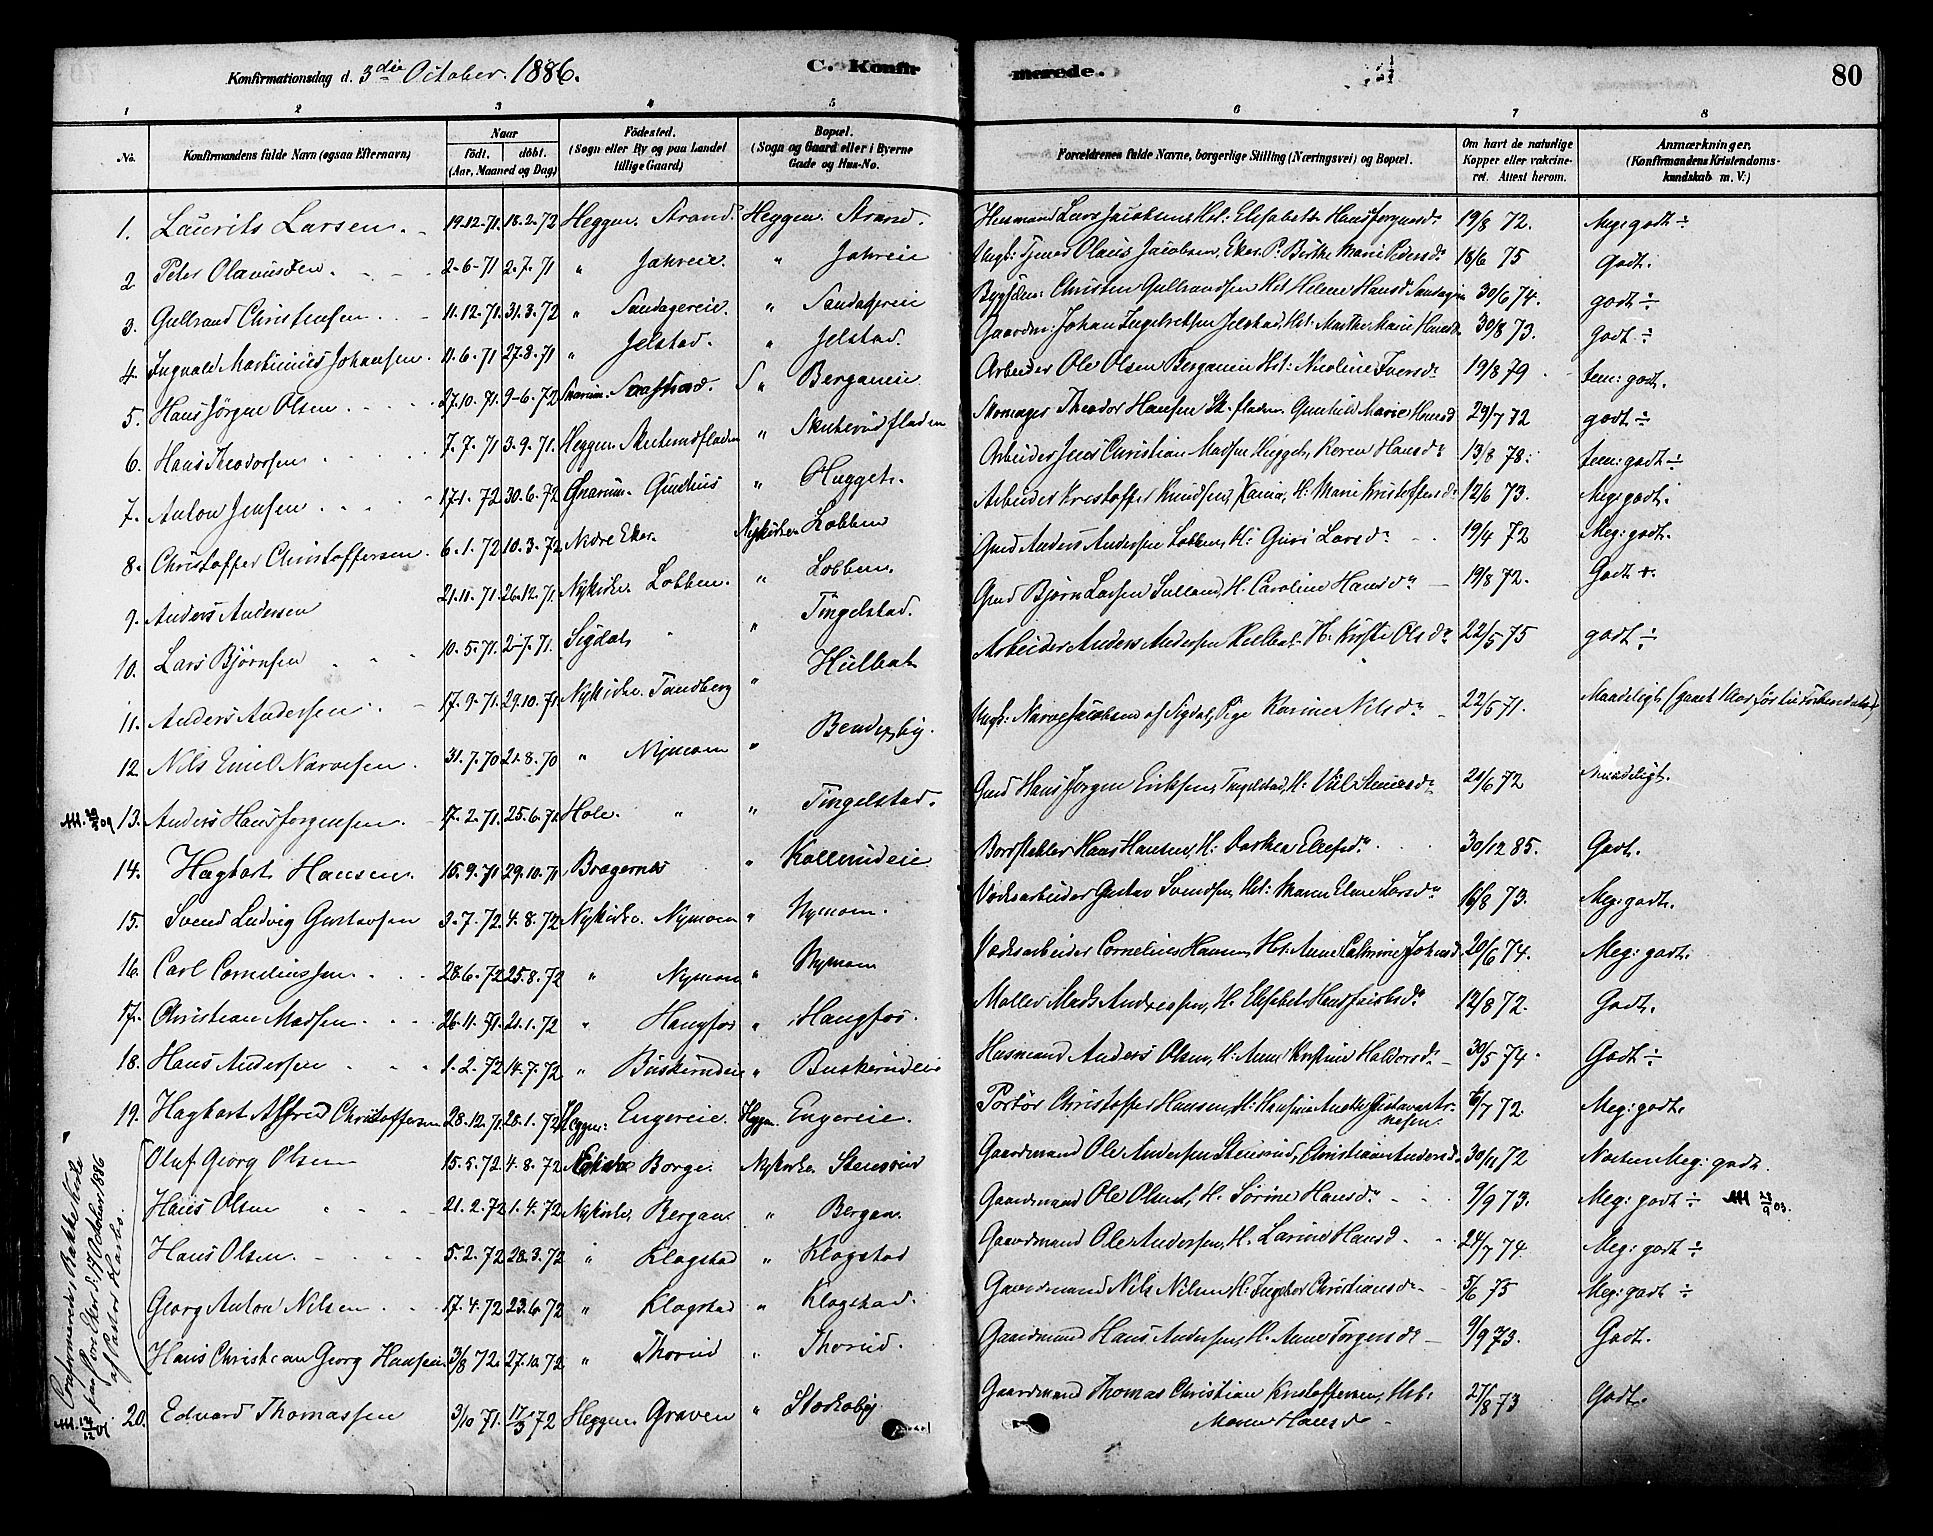 Konfirmationsdag d. 3die October. 1886. C. Konfirmerede. 80
1 2 3 4 5 6 7 8
No. Konfirmandens fulde Navn (ogsaa Efternavn) Naar födt. döbt. (Aar, Maaned og Dag) Födested. (Sogn eller By og paa Landet tillige Gaard) Bopæl. (Sogn og Gaard eller i Byerne Gade og Hus-No. Forældrenes fulde Navne, borgerlige Stilling (Næringsvei) og Bopæl. Om havt de naturlige Kopper eller vakcineret. Attest herom. Anmærkninger. (Konfirmandens Kristendomskundskab m. V.)
1. Laurits Larsen. 19.12.71. 18.2.72 Heggen. Strand. Heggen. Strand. Husmand Lars Jacobsen, Hst: Elisabeth Hansjørgensdr 19/8 72. Meg: godt ÷
2 Peter Olaussen. 2-6-71 2.7.71 " Jahreie. " Jahreie Ungk: Tjener Olaus Jacobsen, Eker. P. Birthe Marie Pedersdr 18/6 75 Godt.
3. Gulbrand Christensen. 11.12.71. 31.3.72 " Sandagereie. " Sandagereie Bygselm: Christen Gulbrandsen Hst Helene Hansd 30/6 74. godt ÷
4. Ingvald Martinius Johansen. 11.6.71 27.8.71 " Jelstad. " Jelstad. Gaardm: Johan Ingebretsen Jelstad, Hst: Marthe Marie Hansd 30/8 73. godt ÷
5. Hans Jörgen Olsen. 27.10.71. 9-6.72 Snarum. S " Berganeie Arbeider Ole Olsen Berganeie Hst: Nicoline Iversdr 19/8 79 tem: godt.
6. Hans Theodorsen. 7.7.71 3.9.71. Heggen. Skuterudfladen " Skuterudfladen Skomager Theodor Hansen Sk.fladen. Gunhild Marie Hansd 29/7 72 godt ÷
7. Anton Jensen. 17.1.72 30.6.72 Snarum. Gudhus " Hugget. Arbeider Jens Christian Madsen Hugget, Karen Hansdr 13/8 78. tem: godt ÷
8. Christoffer Christoffersen. 6.1.72 10.3.72 Nedre Eker. Nykirken Lobben Arbeider Kristoffer Knudsen, H. Marie Kristoffersdr 12/6 73. Meg: godt.
9. Anders Andersen 21.11.71 26.12.71 Nykirke. Lobben. " Lobben. Gmd Anders Andersen Lobben, H: Guri Larsdr 19/4 72 Meg: godt.
10. Lars Bjørnsen 10.5.71. 2-7.71. Sigdal " Tingelstad. Gmd Bjørn Larsen, H. Caroline Hansdr 19/8 72. Godt
11. Anders Andersen 17.9.71 29.10.71 Nykirke. Tandberg " Hulbak Arbeider Anders Andersen Hulbak. H. Kirsti Olsdr 22/5 75 godt ÷
12. Nils Emil Narvesen. 31.7.70 21.8.70 " Nymoen " Ungk: Narve Jacobsen af Sigdal, Pige Karine Nilsdr 22/5 71. Maadeligt
13. Anders Hansjørgensen. 17.2.71. 25.6.71 Hole. " " Tingelstad. Gmd Hans Jørgen Eriksen, Tingelstad, H: 21/6 72 Maadeligt.
14. Hagbart Hansen. 15.9.71 29.10.71 Bragernes " Kollerudeie Bordstabler Hans Hansen, H. Dorthea 30/12 85. Godt.
15. Svend Ludvig Gustavsen 3-7.72. 4.8.72 Nykirke. Nymoen " Nymoen. Gustav Svendsen, Hst: Maren Larsdr 16/8 73. Meg: godt.
16. Carl Corneliussen. 28.6.72 25.8.72 " Nymoen " Nymoen Cornelius Hansen, Hst. Anne Cathrine Johansd 20/6 74. Meg: godt.
17. Christian Madsen. 26.11.71. 21.1.72 " Haugfos " Haugfos. Møller Mads Andreassen, H. Elisabet 12/8 72. Godt.
18. Hans Andersen 1.2.72 14.7.72 " Buskerudeie " Buskerudeie Husmand Anders Olsen, H. Anne Kristine Haldorsdr 30/5 74. Godt ÷
19. Hagbart Alfred Christoffersen 28.12.71. 28.1.72 Heggen: Engereie. Heggen. Engereie. Portör Christoffer Hansen, H. 6/7 72. Meg: godt.
Oluf Georg Olsen 15.5.72 4.8.72 Nykirke Borge. Nykirke Stensrud Gaardmand Ole Andersen Stensrud, Christiane Andersd. 30/11 72 Næsten Meg: godt.
Hans Olsen 21.2.72 1.4.72 Nykirke. Bergan. " Bergan. Gaardmand Ole Olsen, H. Sörine Hansdr 9/9 73. Meg: godt ÷
Hans Olsen 5.2.72 28.3.72 " Klogstad " Klogstad Gaardmand Ole Andersen, H. Larine Hansd. 24/7 74. Meg: godt ÷
Georg Anton Nilsen 17.4.72 23.6.72 " Klogstad " Klogstad. Gaardmand Nils Nilsen H. Ingebor Christiansdr 5/6 75 Meg: godt ÷
Hans Christian Georg Hansen. 3/8 72. 27.10.72 " Thorud " Thorud. Gaardmand Hans Andersen, H. Anne Torgersdr 9/9 73. Godt.
20. Edvard Thomassen 3/10 71. 17/3 72 Heggen. Graven " Gaardmand Thomas Christian Kristoffersen, Hst: Maren Hansdr 27/8 73 Godt.
Confirmerede i Bakke Kirke
paa Øvre Eker d. 17 October 1886
af Pastor Harbo.